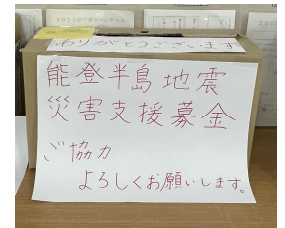 ありがとうございます
能登半島地震
災害支援募金
ご協力
よろしくお願いします。